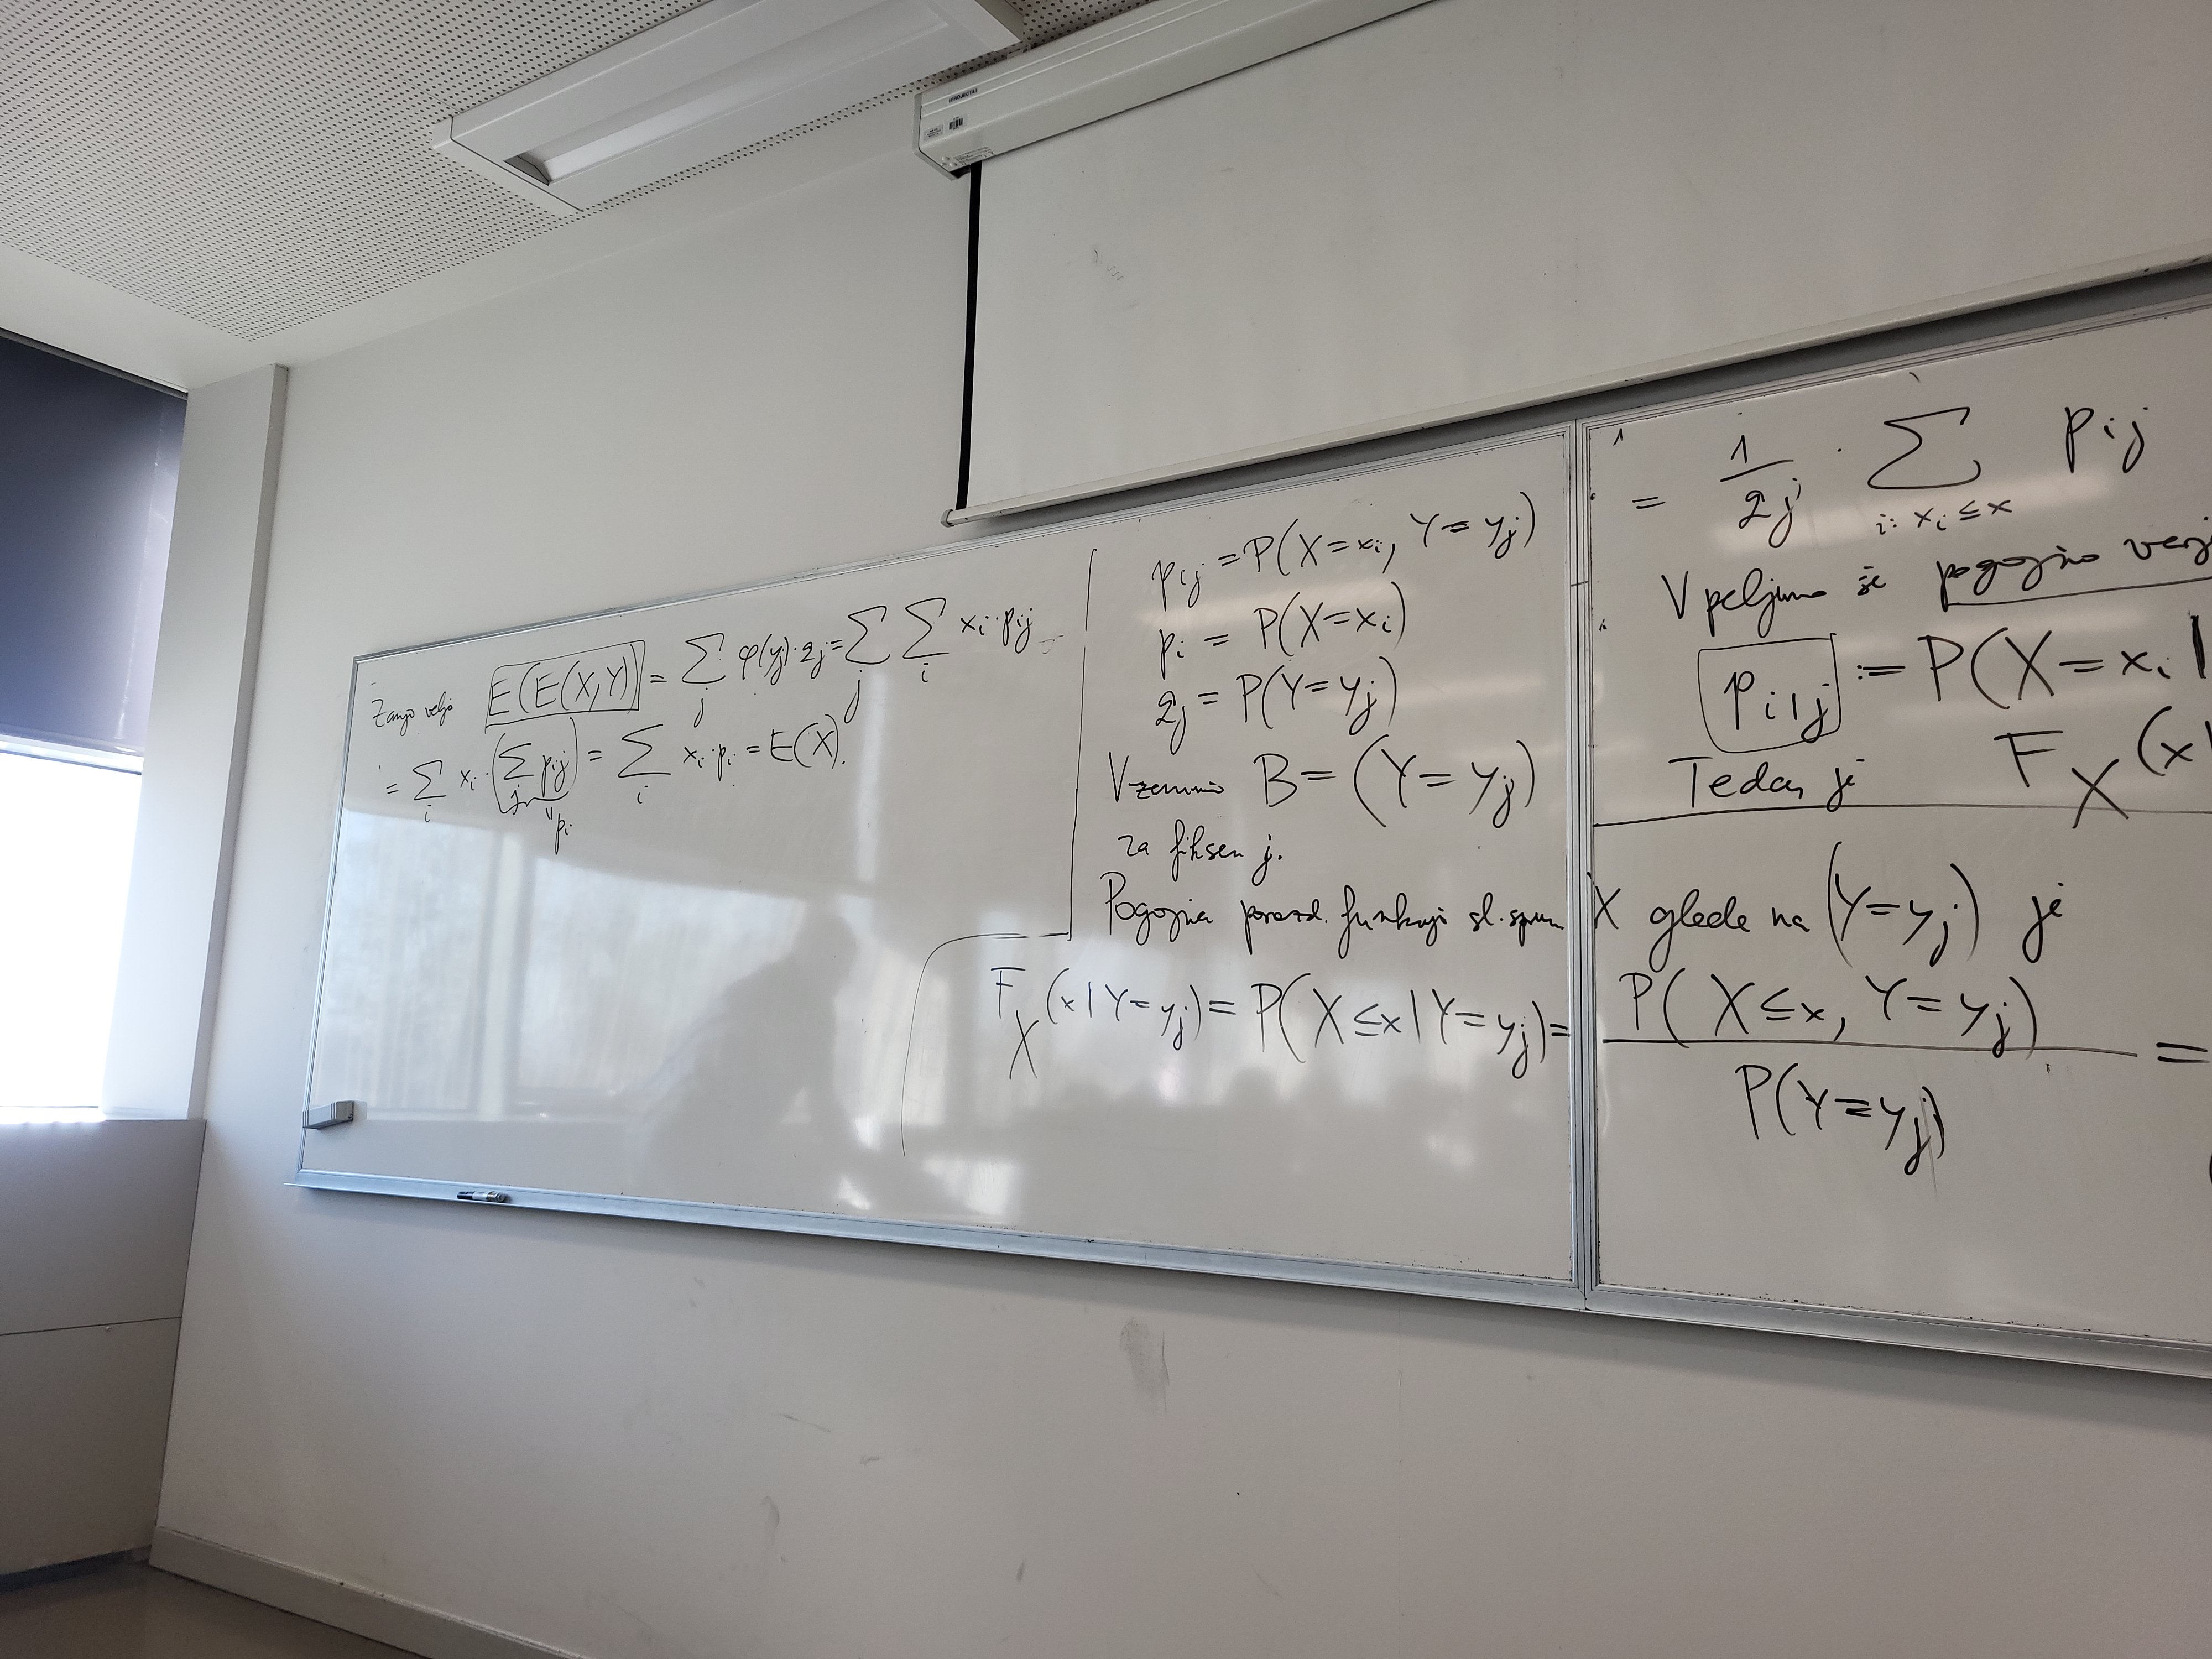 Zanjo velja E(E(X,Y)) = ∑_j φ(y_j)·q_j = ∑_j ∑_i x_i·p_ij =
= ∑_i x_i·(∑_j p_ij) = ∑_i x_i·p_i = E(X).
" p_i
p_ij = P(X=x_i, Y=y_j)
p_i = P(X=x_i)
q_j = P(Y=y_j)
Vzemimo B = (Y=y_j)
za fiksen j.
Pogojna porazd. funkcija sl. sprem. X glede na (Y=y_j) je
F_X(x|Y=y_j) = P(X≤x|Y=y_j) = P(X≤x, Y=y_j) / P(Y=y_j) =
= 1/q_j · ∑_{i: x_i≤x} p_ij
Vpeljimo še pogojno verj
p_i|j := P(X=x_i|
Tedaj je F_X(x|